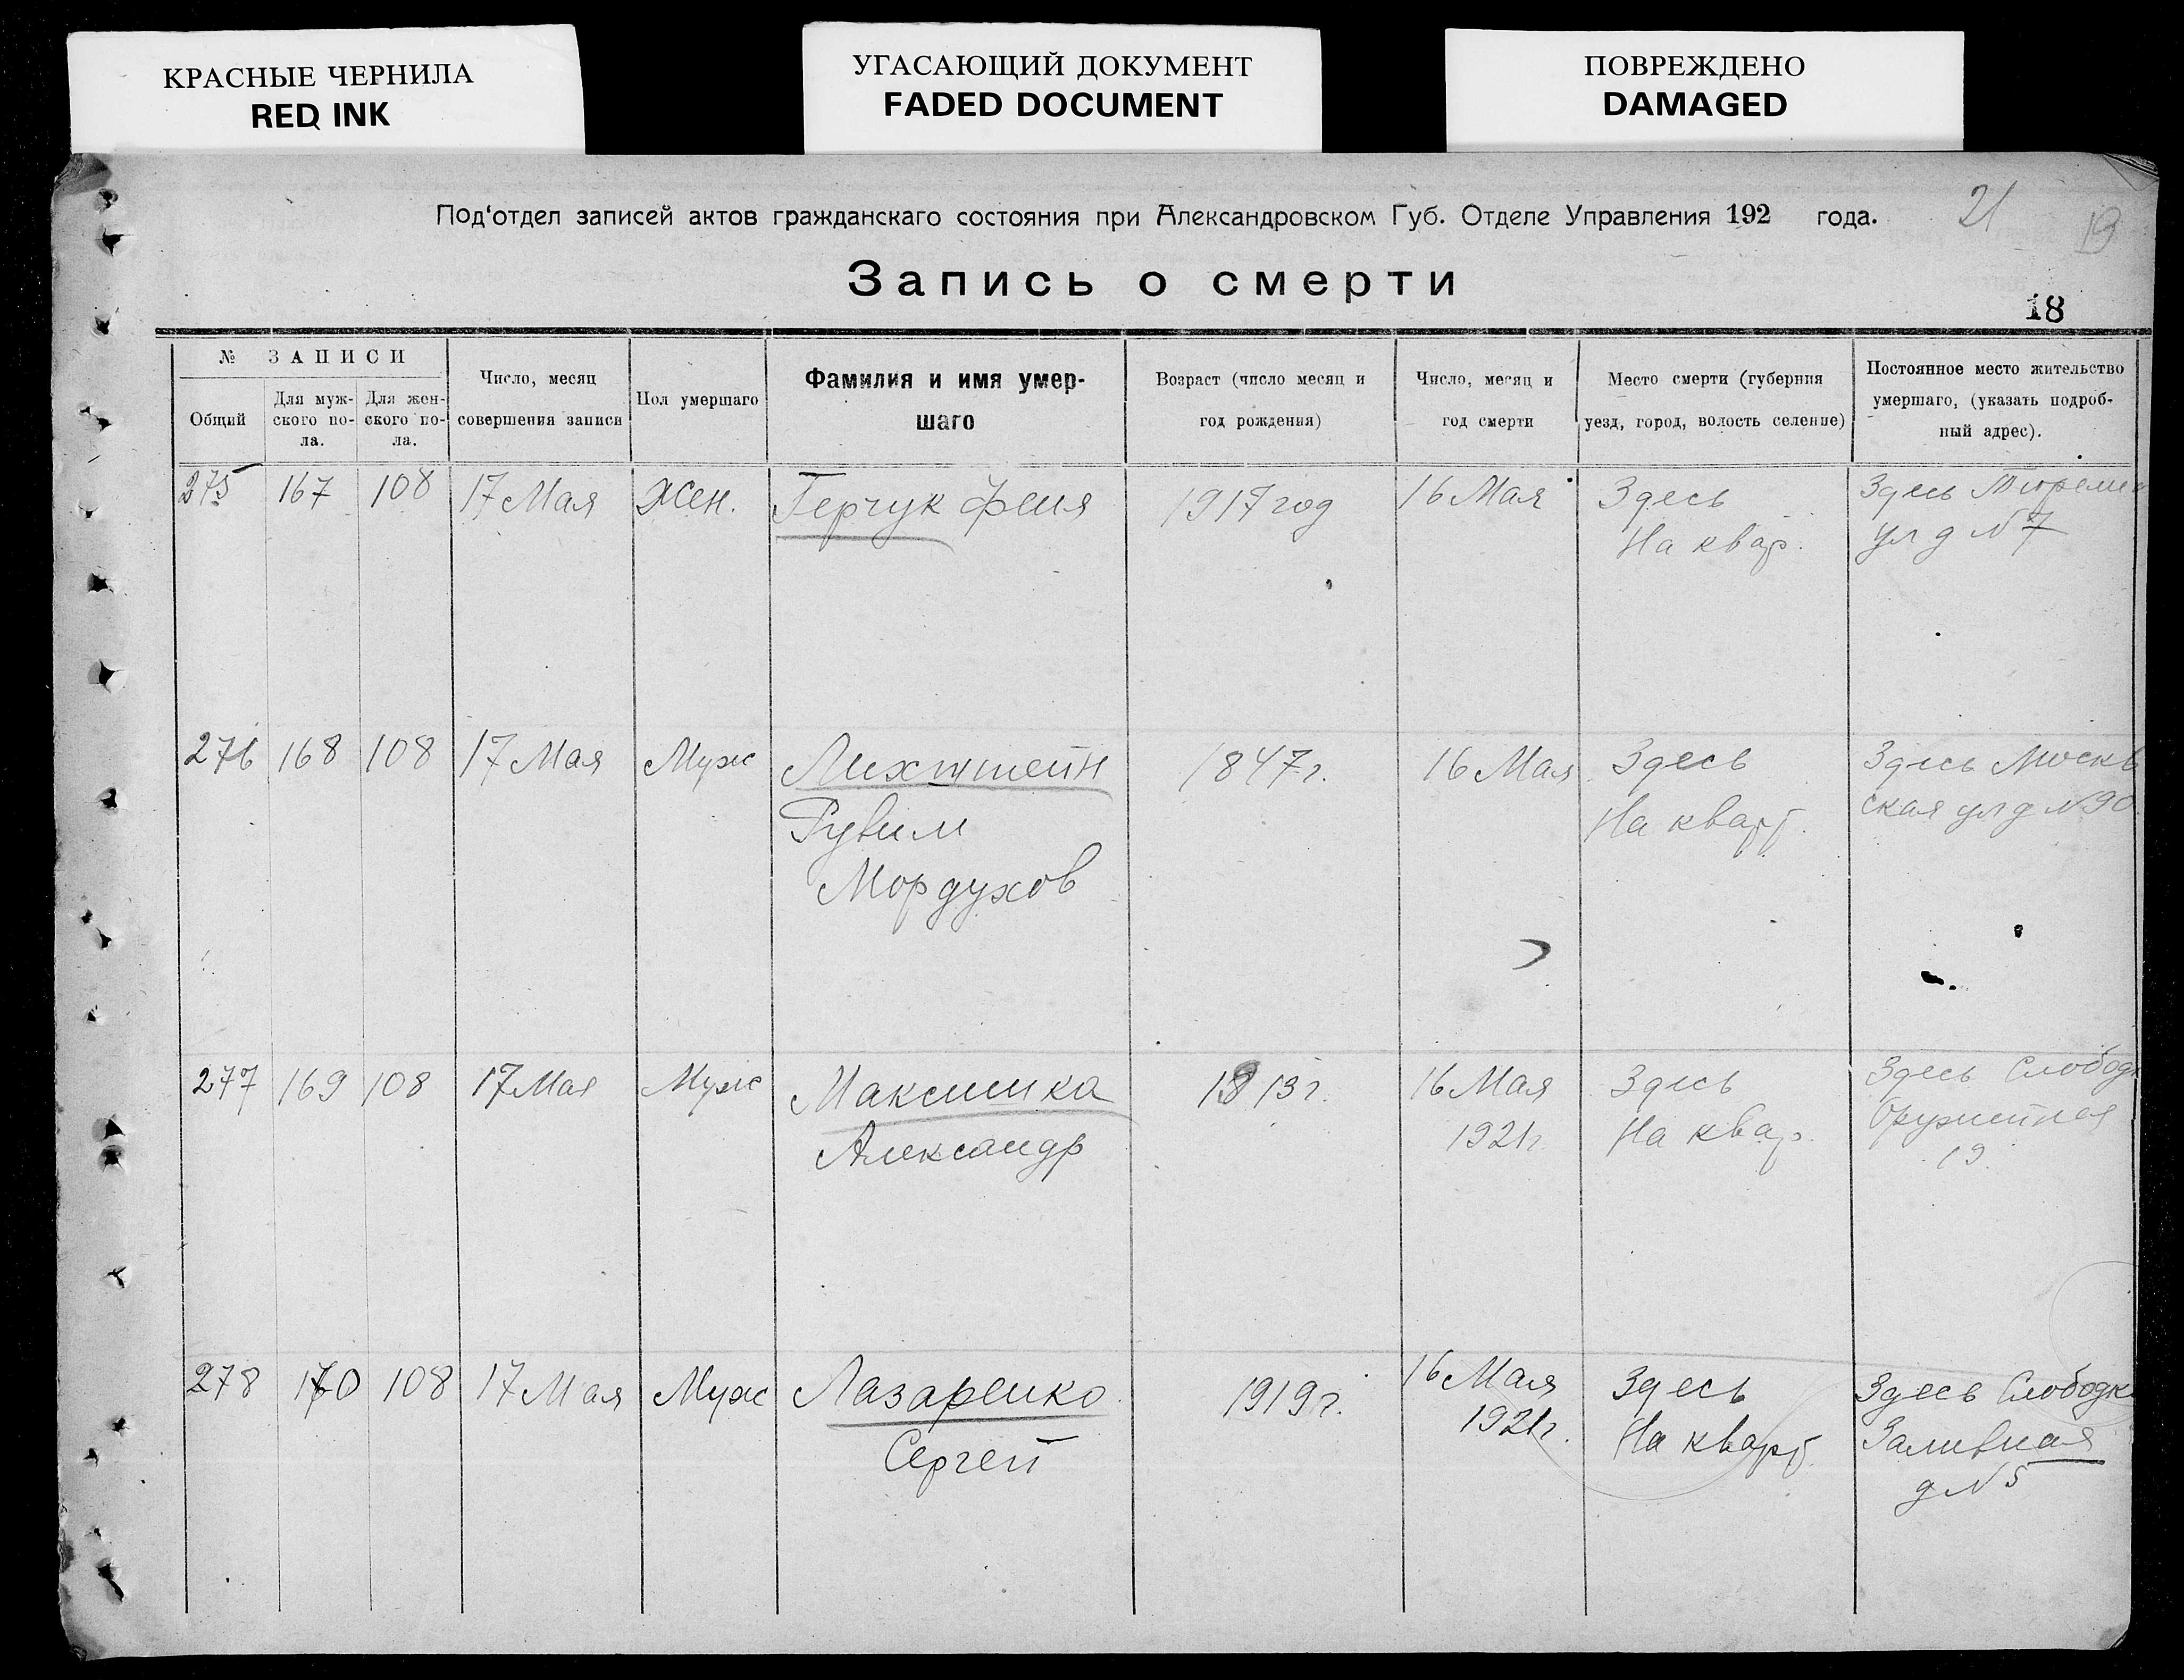 КРАСНЫЕ ЧЕРНИЛА
RED INK
УГАСАЮЩИЙ ДОКУМЕНТ
FADED DOCUMENT
ПОВРЕЖДЕНО
DAMAGED
Под‘отдел записей актов гражданскаго состояния при Александровском Губ. Отделе Управления 192 года.
21
19
Запись о смерти
18
№ ЗАПИСИ
Общий
Для муж-
ского по-
ла.
Для жен-
ского по-
ла.
Число, месяц
совершения записи
Пол умершаго
Фамилия и имя умер-
шаго
Возраст (число месяц и
год рождения)
Число, месяц и
год смерти
Место смерти (губерния
уезд, город, волость селение)
Постоянное место жительство
умершаго, (указать подроб-
ный адрес).
275 167 108 17 Мая Жен. Герчук Феня 1917 год 16 Мая Здесь
На квар.
Здесь
ул д N 7
276 168 108 17 Мая Муж Лихтштейн
Рувим
Мордухов
1847 г. 16 Мая Здесь
На кварт.
Здесь Москв
ская ул д N 90
277 169 108 17 Мая Муж Максимка
Александр
1913 г. 16 Мая
1921 г.
Здесь
На квар.
Здесь Слободк
Оружейная
19
278 170 108 17 Мая Муж Лазаренко
Сергей
1919 г. 16 Мая
1921 г.
Здесь
На кварт.
Здесь Слободк
Заливная
д N 5